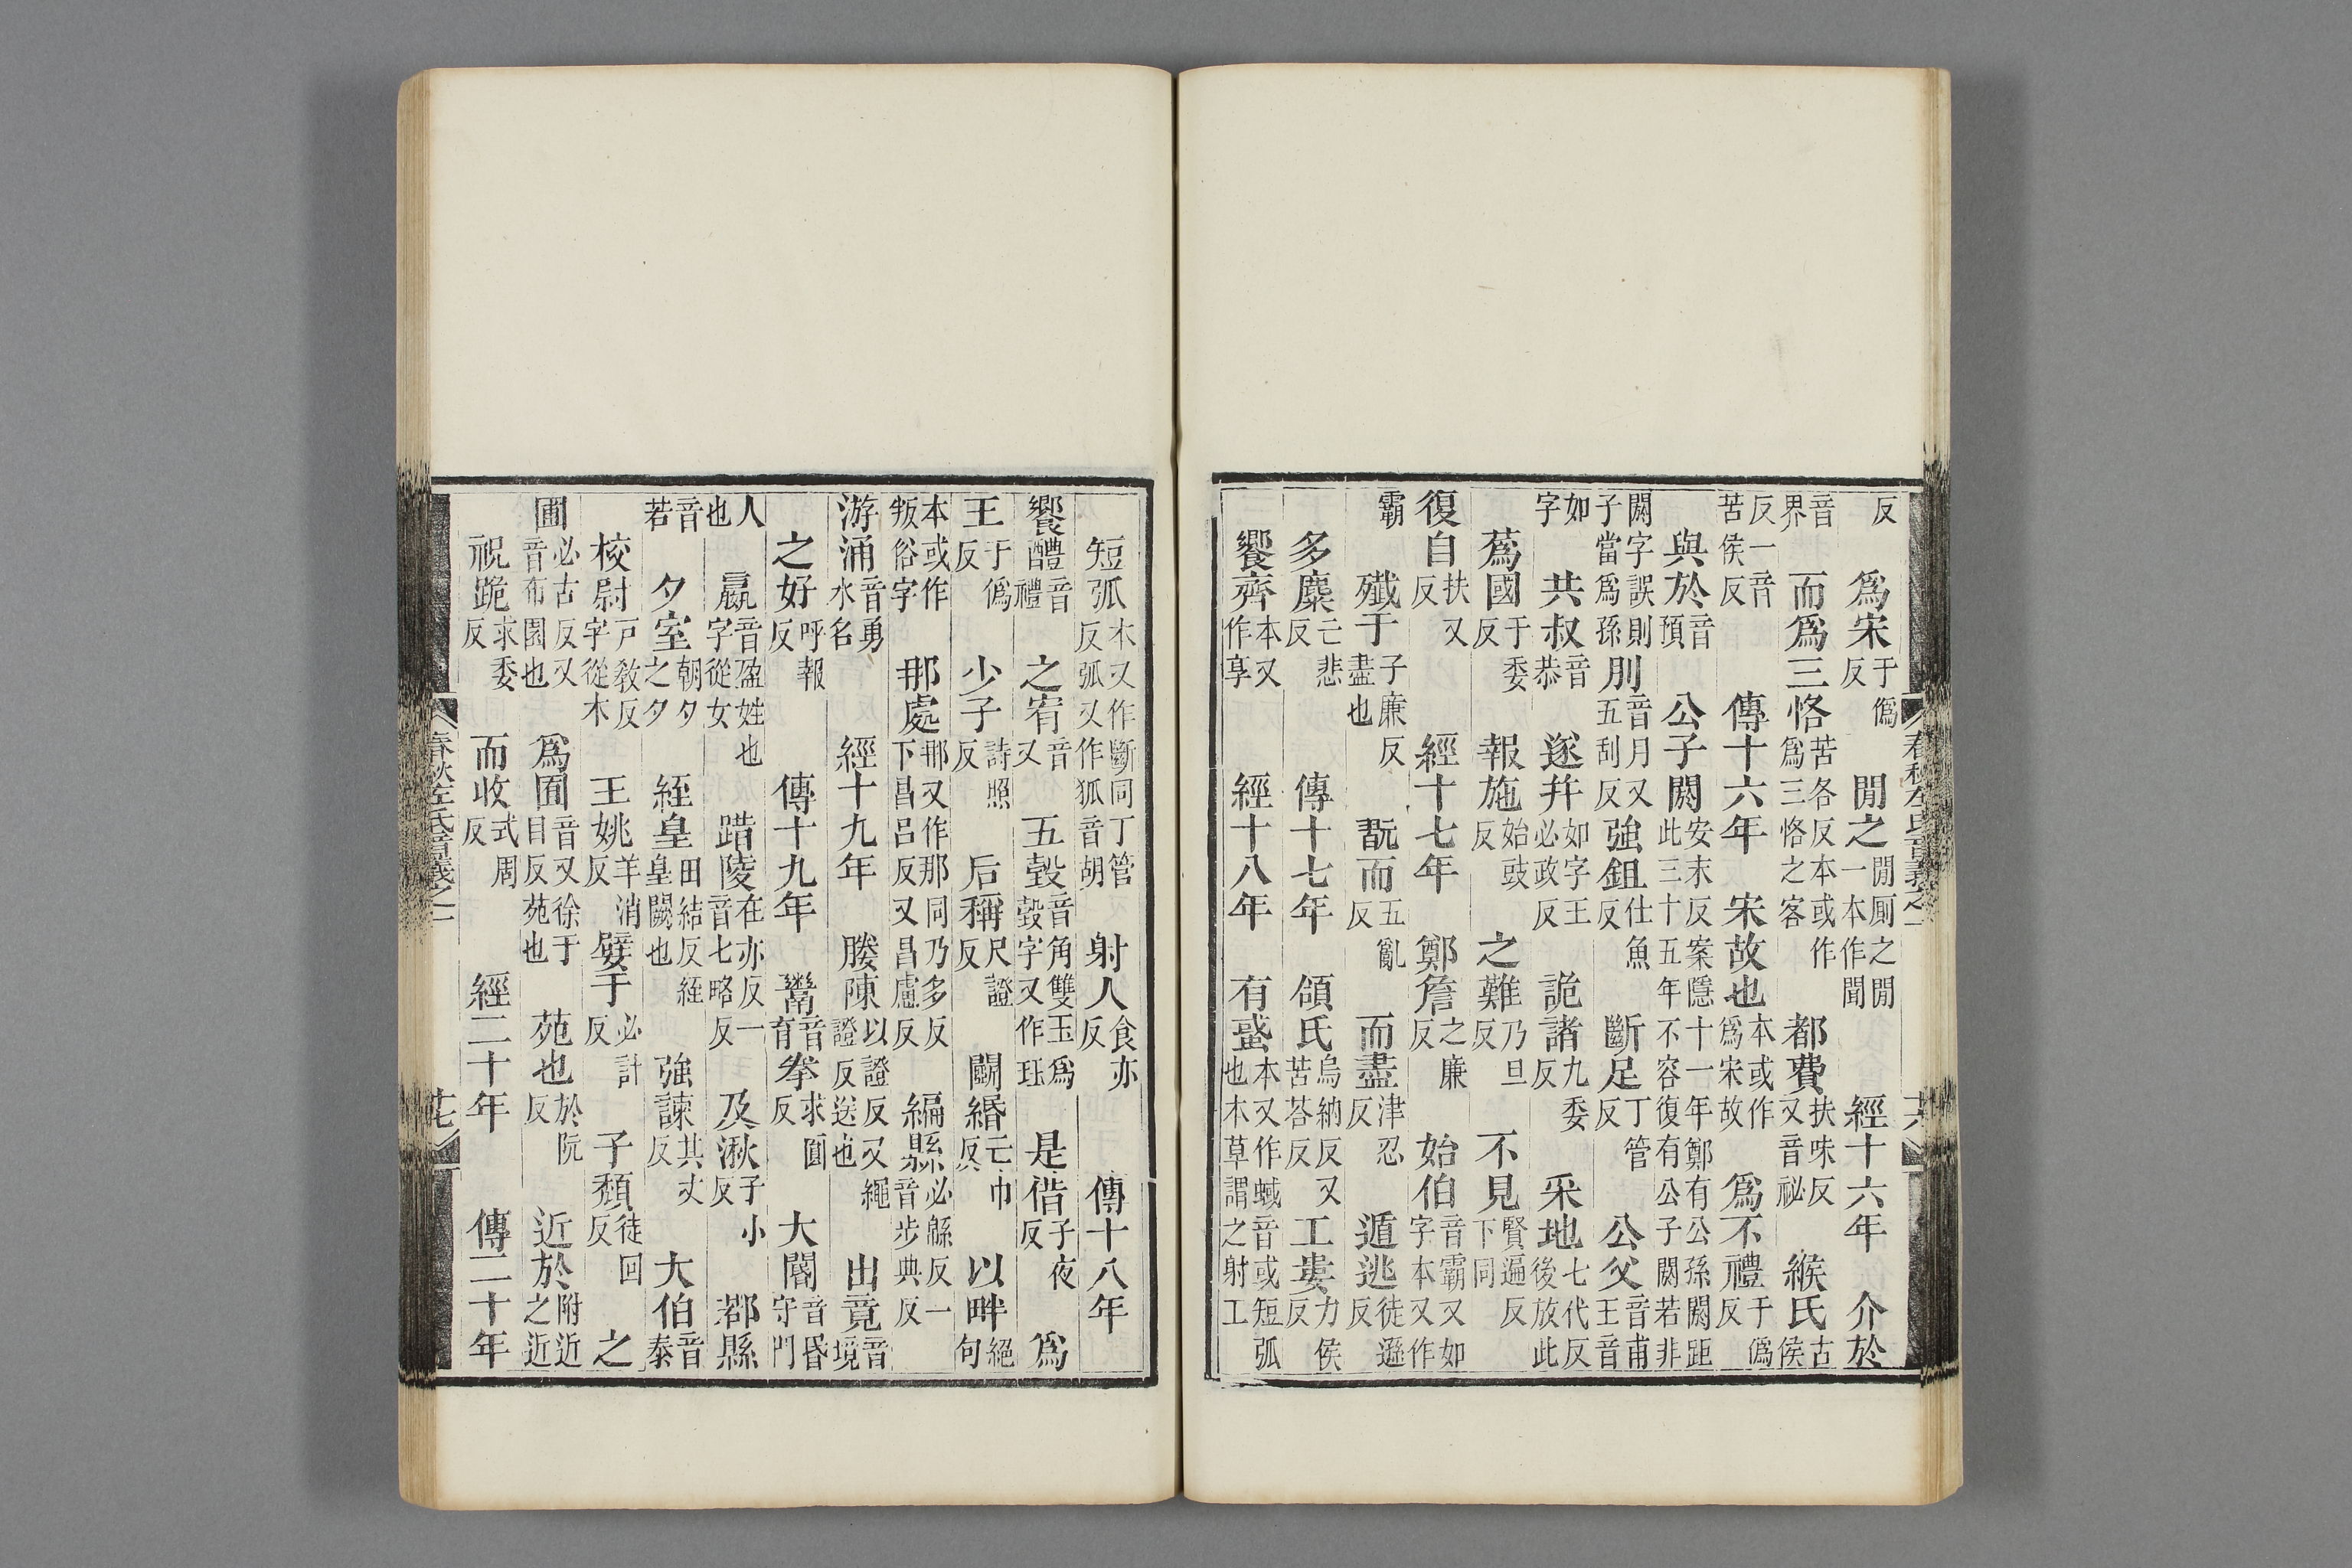 春秋左氏音義之一
反 爲宋于僞反 閒之閒厠之閒一本作聞 經十六年 介於
音界 而爲三恪苦各反本或作爲三恪之客 都費扶味反又音祕 緱氏古侯
反一音苦侯反 傳十六年 宋故也本或作爲宋故 爲不禮于僞反
與於音預 公子閼安末反案隱十一年鄭有公孫閼距此三十五年不容復有公子閼若非
閼字誤則子當爲孫 刖音月又五刮反 強鉏仕魚反 斷足丁管反 公父音甫王音
如字 共叔音恭 遂幷如字王必政反 詭諸九委反 采地七代反後放此
蔿國于委反 報施始豉反 之難乃旦反 不見賢遍反下同
復自扶又反 經十七年 鄭詹之廉反 始伯音霸又如字本又作
霸 殲于子廉反盡也 翫而五亂反 而盡津忍反 遁逃徒遜反
多麋亡悲反 傳十七年 頜氏烏納反又苦荅反 工婁力侯反
饗齊本又作享 經十八年 有蜮本又作蜮音或短弧也本草謂之射工
短弧本又作斷同丁管反弧又作狐音胡 射人食亦反 傳十八年
饗醴音禮 之宥音又 五瑴音角雙玉爲瑴字又作珏 是借子夜反 爲
王于僞反 少子詩照反 后稱尺證反 鬭緡亡巾反 以畔絕句
本或作叛俗字 那處那又作那同乃多反下昌呂反又昌慮反 編縣必緜反一音步典反
游涌音勇水名 經十九年 媵陳以證反又繩證反送也 出竟音境
之好呼報反 傳十九年 鬻音育拳求圓反 大閽音昏守門
人也 嬴音盈姓也字從女 踖陵在亦反一音七略反 及湫子小反 鄀縣
音若 夕室朝夕之夕 絰皇田結反絰皇闕也 強諫其丈反 大伯音泰
校尉戶敎反字從木 王姚羊消反 嬖于必計反 子頹徒回反 之
圃必古反又音布園也 爲囿音又徐于目反苑也 苑也於阮反 近於附近之近
祝跪求委反 而收式周反 經二十年 傳二十年
春秋左氏音義之一